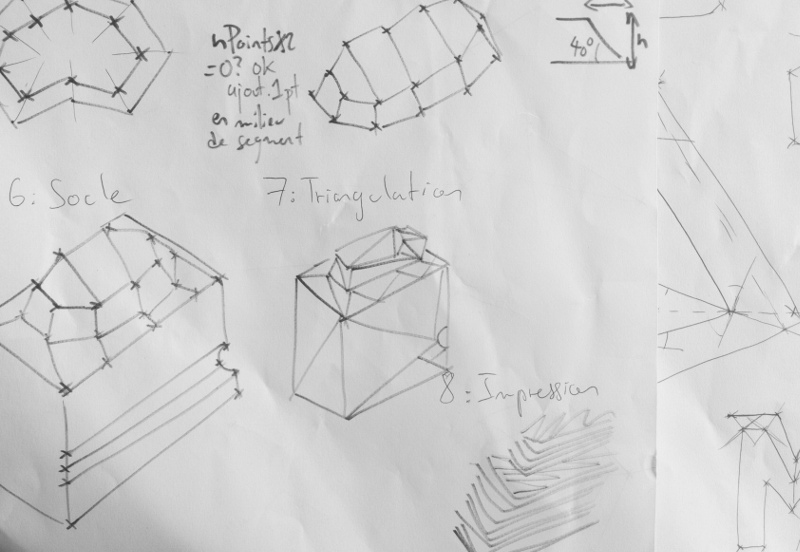 nPoints%2
=0? ok
ajout.1pt
en milieu
de segment
40°
h
6: Socle
7: Triangulation
8: Impression